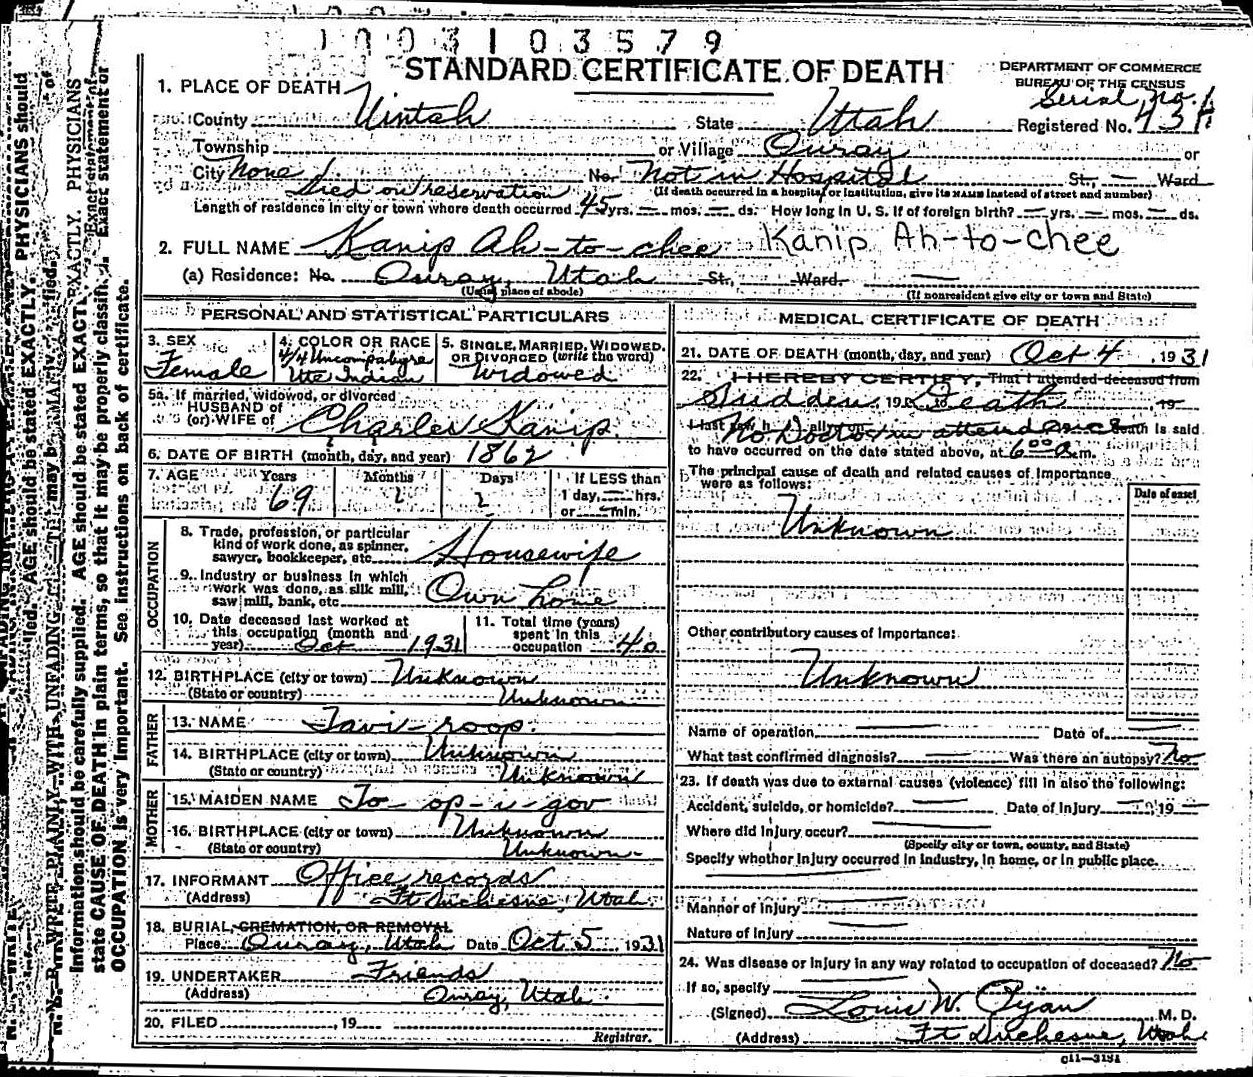 1003103579
STANDARD CERTIFICATE OF DEATH
DEPARTMENT OF COMMERCE
BUREAU OF THE CENSUS
1. PLACE OF DEATH
Serial no.
County Uintah State Utah Registered No. 43
Township or Village Ouray or
City None No. Not in Hospital St., Ward
Died on reservation (If death occurred in a hospital or institution, give its NAME instead of street and number)
Length of residence in city or town where death occurred 45 yrs. — mos. — ds. How long in U. S. if of foreign birth? — yrs. — mos. — ds.
2. FULL NAME Kanip Ah-to-chee Kanip Ah-to-chee
(a) Residence: No. Ouray, Utah St., Ward.
(Usual place of abode) (If nonresident give city or town and State)
PERSONAL AND STATISTICAL PARTICULARS
3. SEX
Female
4. COLOR OR RACE
4/4 Uncompahgre
Ute Indian
5. SINGLE, MARRIED, WIDOWED,
OR DIVORCED (write the word)
Widowed
5a. If married, widowed, or divorced
HUSBAND of
(or) WIFE of Charles Kanip.
6. DATE OF BIRTH (month, day, and year) 1862
7. AGE Years Months Days If LESS than
69 ? ? 1 day, — hrs.
or — min.
OCCUPATION
8. Trade, profession, or particular
kind of work done, as spinner,
sawyer, bookkeeper, etc. Housewife
9. Industry or business in which
work was done, as silk mill,
saw mill, bank, etc Own home
10. Date deceased last worked at
this occupation (month and
year) Oct 1931
11. Total time (years)
spent in this
occupation 40
12. BIRTHPLACE (city or town) Unknown
(State or country) Unknown
FATHER
13. NAME Tavi-roop.
14. BIRTHPLACE (city or town) Unknown
(State or country) Unknown
MOTHER
15. MAIDEN NAME To-op-u-gov
16. BIRTHPLACE (city or town) Unknown
(State or country) Unknown
17. INFORMANT Office records
(Address) Ft Duchesne, Utah
18. BURIAL, CREMATION, OR REMOVAL
Place Ouray, Utah Date Oct 5 1931
19. UNDERTAKER Friends
(Address) Ouray, Utah.
20. FILED , 19
Registrar.
MEDICAL CERTIFICATE OF DEATH
21. DATE OF DEATH (month, day, and year) Oct 4, 1931
22. I HEREBY CERTIFY, That I attended deceased from
Sudden, 19 to Death, 19
No Doctor in attendance death is said
to have occurred on the date stated above, at 6:00 a.m.
The principal cause of death and related causes of importance
were as follows:
Date of onset
Unknown
Other contributory causes of importance:
Unknown
Name of operation — Date of —
What test confirmed diagnosis? — Was there an autopsy? No
23. If death was due to external causes (violence) fill in also the following:
Accident, suicide, or homicide? — Date of injury — 19 —
Where did injury occur? —
(Specify city or town, county, and State)
Specify whether injury occurred in industry, in home, or in public place.
Manner of injury —
Nature of injury —
24. Was disease or injury in any way related to occupation of deceased? No
If so, specify
(Signed) Louis W. , M. D.
(Address) Ft Duchesne, Utah
C11—3151
information should be carefully supplied. AGE should be stated EXACTLY. PHYSICIANS
state CAUSE OF DEATH in plain terms, so that it may be properly classified. Exact statement of
OCCUPATION is very important. See instructions on back of certificate.